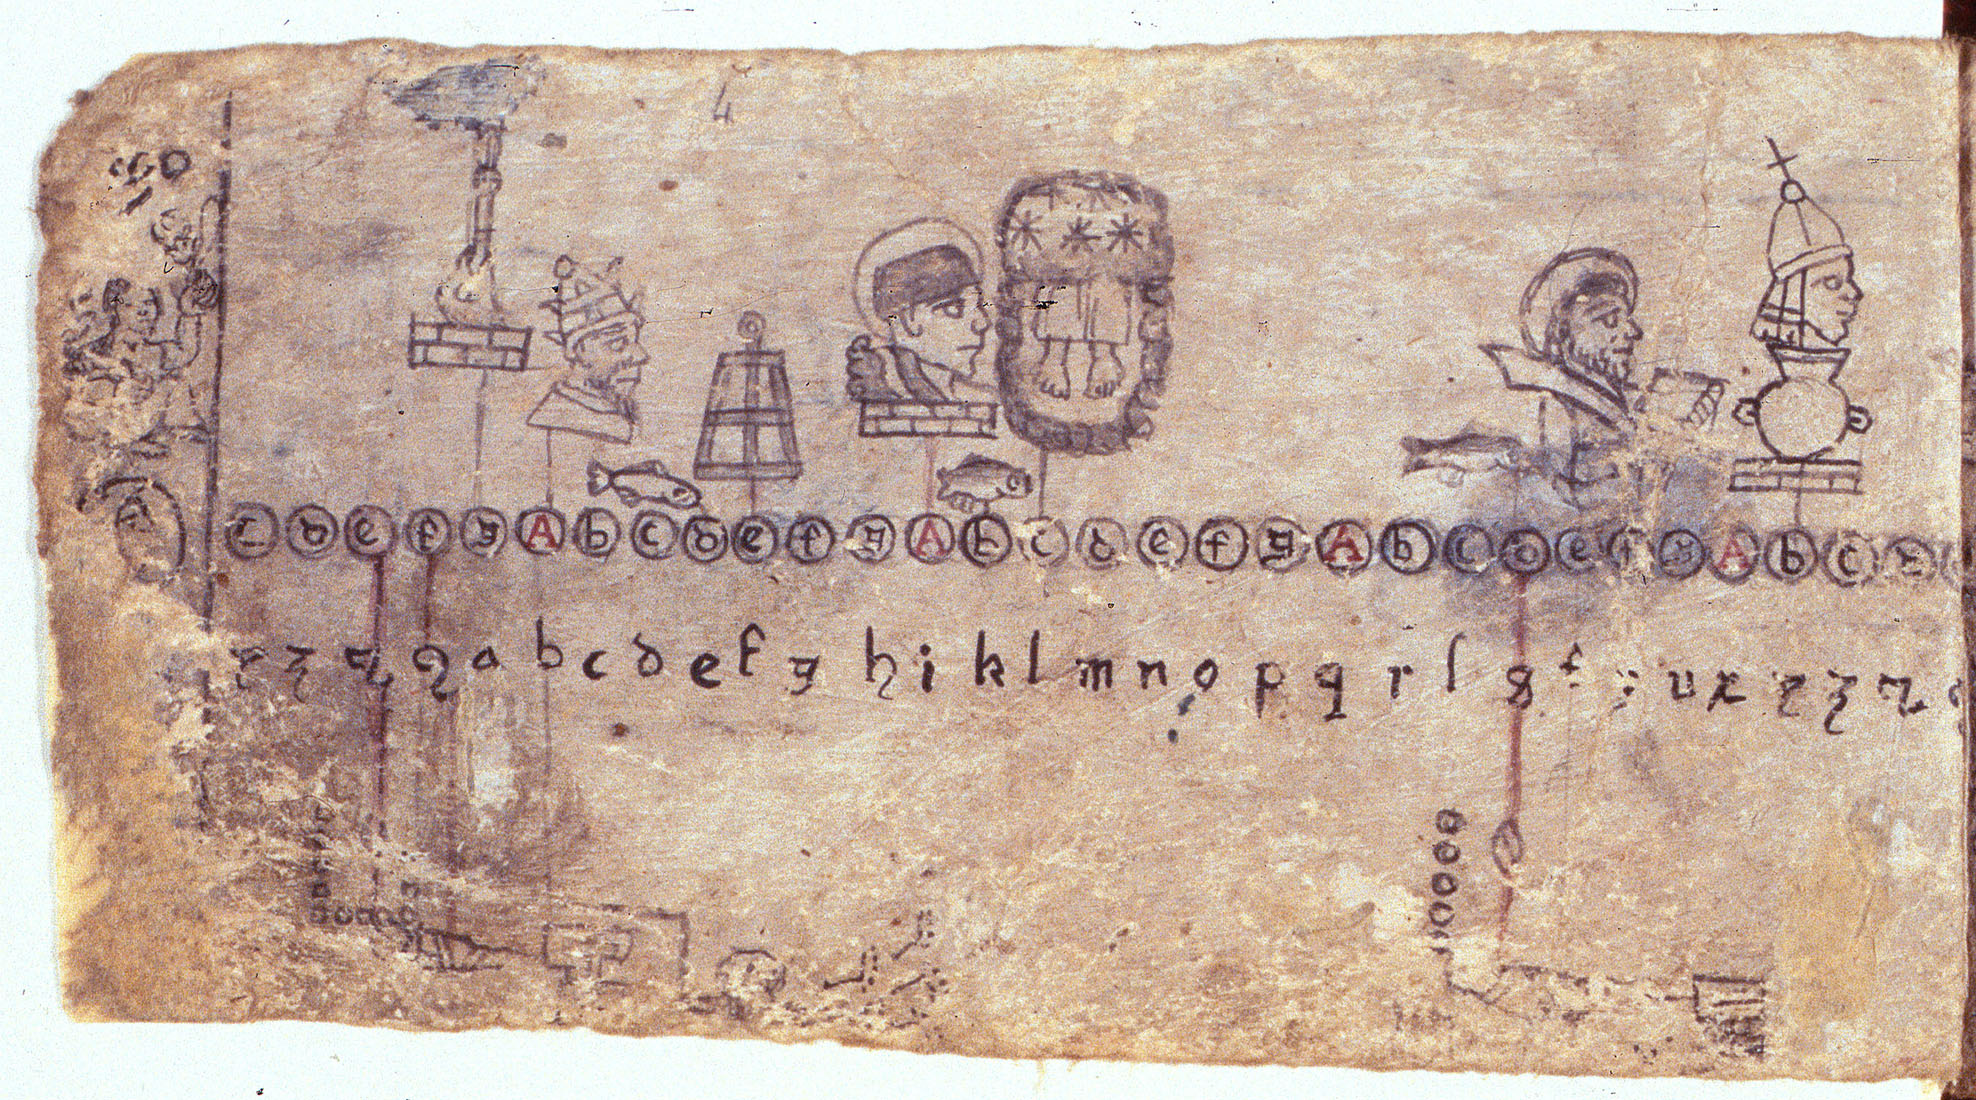 4
c d e f g A b c d e f g A b c d e f g A b c d e f g A b c
z z a b c d e f g h i k l m n o p q r ſ s u x z z